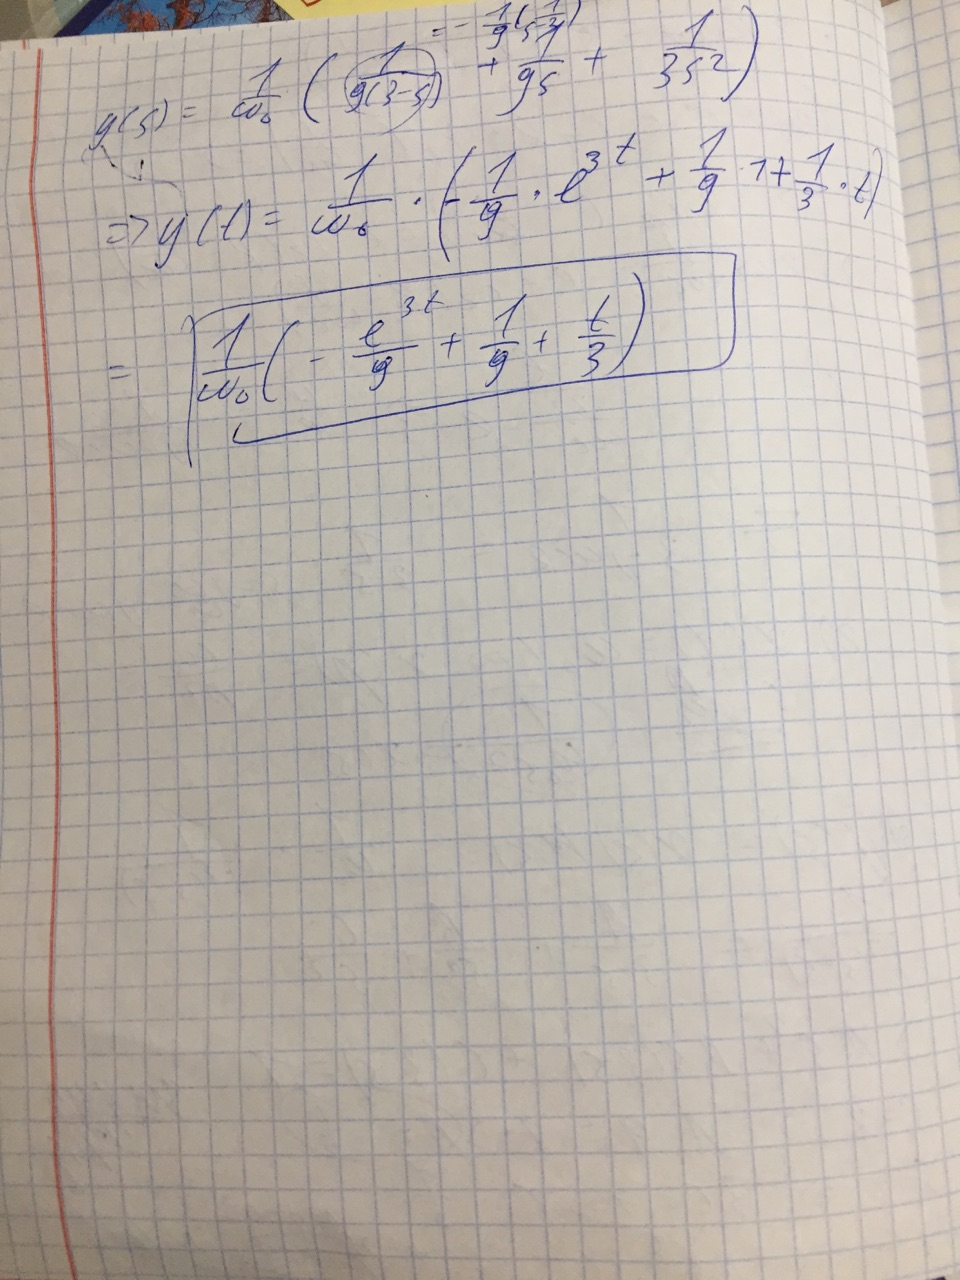 = -1/9(s-3)
y(s) = 1/ω₀ ( 1/9(3-s) + 1/9s + 1/3s² )
=> y(t) = 1/ω₀ · ( -1/9 · e^3t + 1/9 · 1 + 1/3 · t )
= 1/ω₀ ( - e^3t/9 + 1/9 + t/3 )